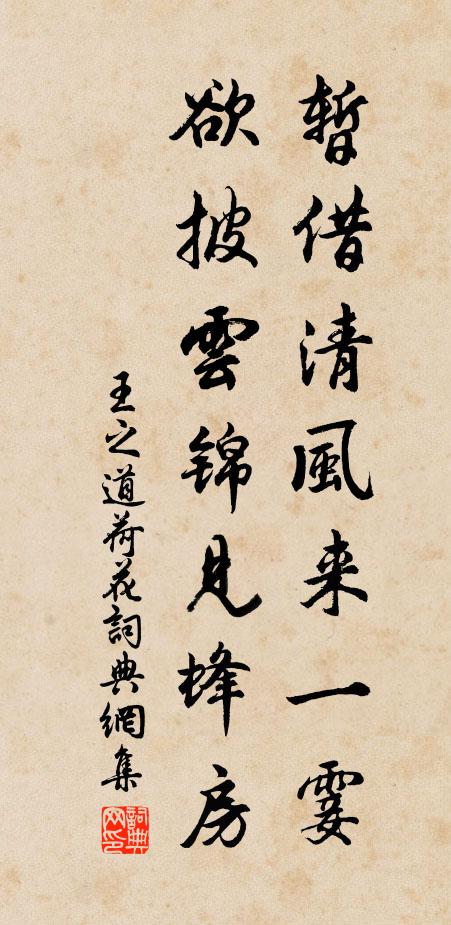 暫借清風来一霎
欲披雲錦見蜂房
王之道荷花詞典網集
詞典网印